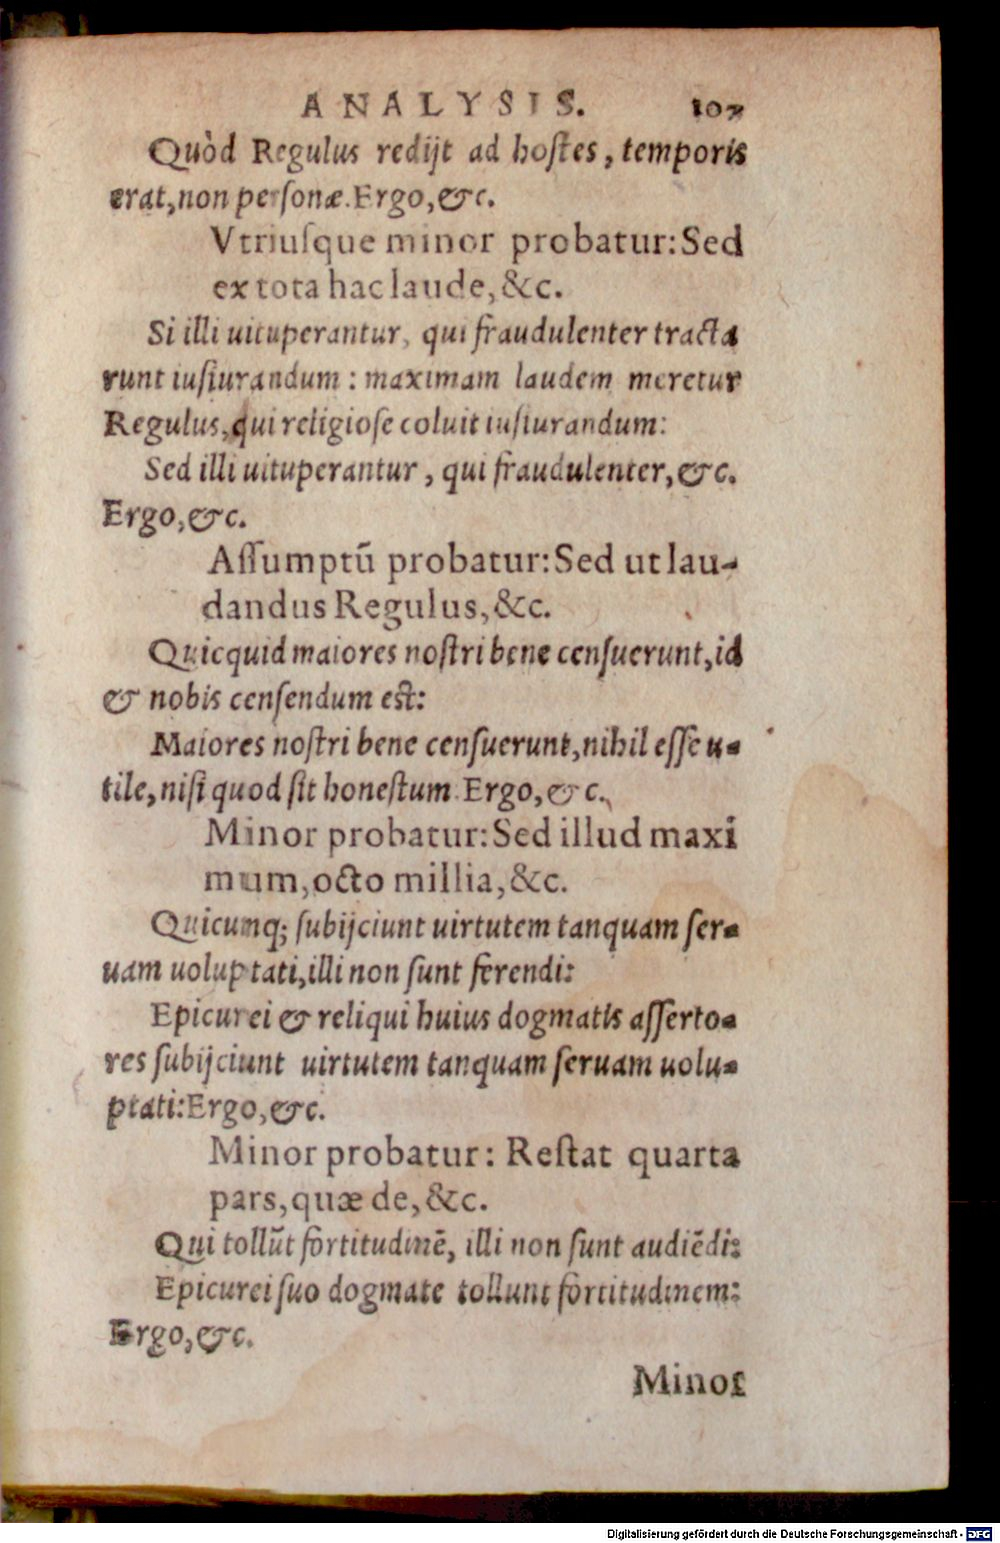 ANALYSIS. 107
Quòd Regulus redijt ad hoſtes, temporis
erat, non perſonæ. Ergo, &c.
Vtriuſque minor probatur: Sed
ex tota hac laude, &c.
Si illi uituperantur, qui fraudulenter tracta
runt iuſiurandum: maximam laudem meretur
Regulus, qui religioſe coluit iuſiurandum:
Sed illi uituperantur, qui fraudulenter, &c.
Ergo, &c.
Aſſumptū probatur: Sed ut lau-
dandus Regulus, &c.
Quicquid maiores noſtri bene cenſuerunt, id
& nobis cenſendum eſt:
Maiores noſtri bene cenſuerunt, nihil eſſe u-
tile, niſi quod ſit honeſtum. Ergo, &c.
Minor probatur: Sed illud maxi
mum, octo millia, &c.
Quicunq; ſubijciunt uirtutem tanquam ſer-
uam uoluptati, illi non ſunt ferendi:
Epicurei & reliqui huius dogmatis aſſerto-
res ſubijciunt uirtutem tanquam ſeruam uolu-
ptati: Ergo, &c.
Minor probatur: Reſtat quarta
pars, quæ de, &c.
Qui tollūt fortitudinē, illi non ſunt audiēdi:
Epicurei ſuo dogmate tollunt fortitudinem:
Ergo, &c.
Minor
Digitalisierung gefördert durch die Deutsche Forschungsgemeinschaft - DFG